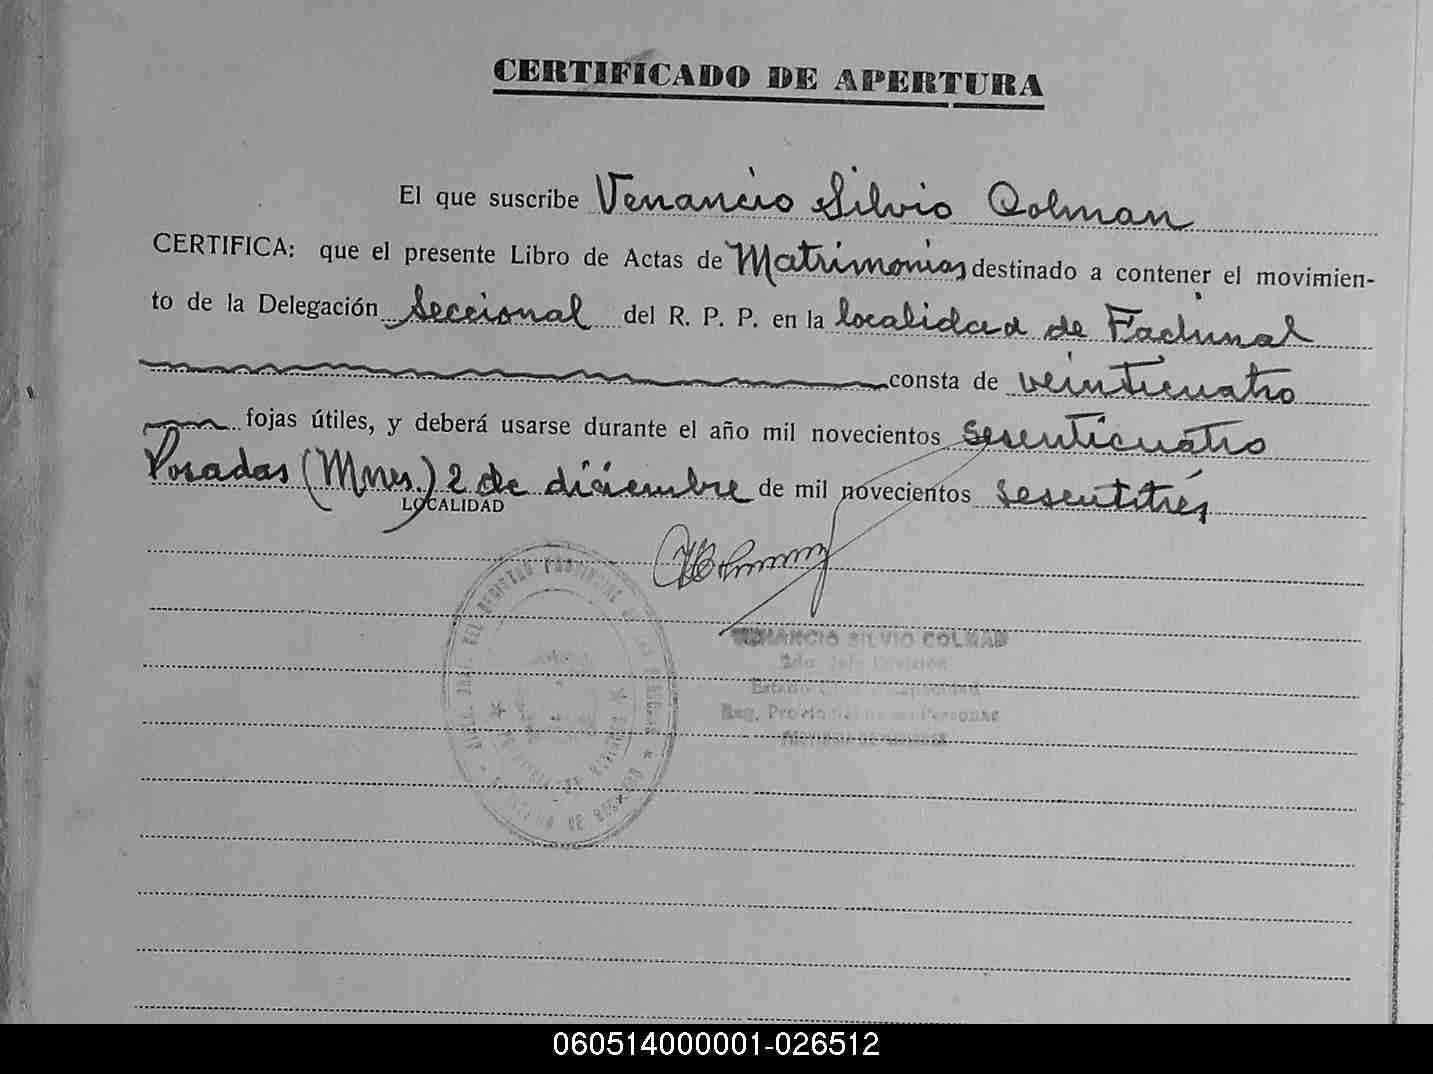 CERTIFICADO DE APERTURA
El que suscribe Venancio Silvio Colman
CERTIFICA: que el presente Libro de Actas de Matrimonios destinado a contener el movimien-
to de la Delegación Seccional del R. P. P. en la localidad de Fachinal
consta de veinticuatro
fojas útiles, y deberá usarse durante el año mil novecientos sesenticuatro
Posadas (Mnes.) 2 de diciembre de mil novecientos sesentitrés
LOCALIDAD
VENANCIO SILVIO COLMAN
2do. Jefe División
Estado Civil y Capacidad
Reg. Provincial de las Personas
060514000001-026512